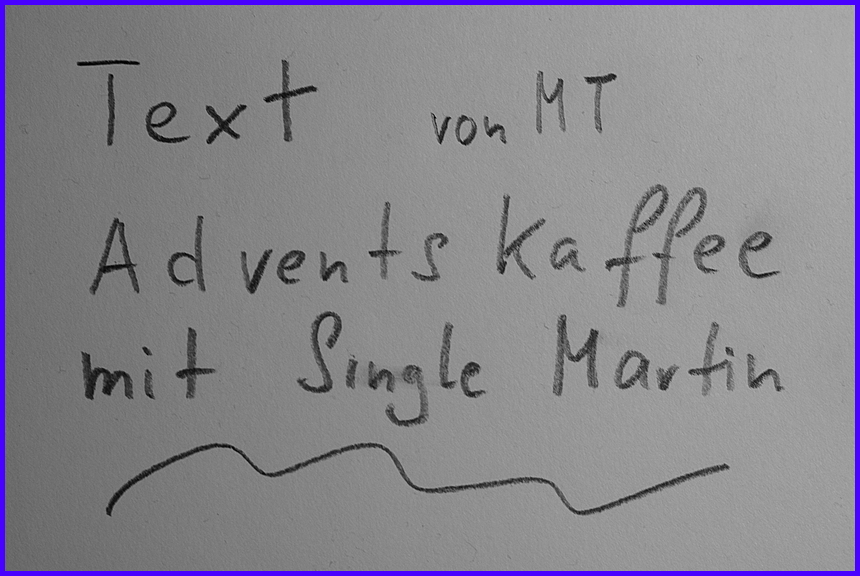 Text von MT
Advents Kaffee
mit Single Martin